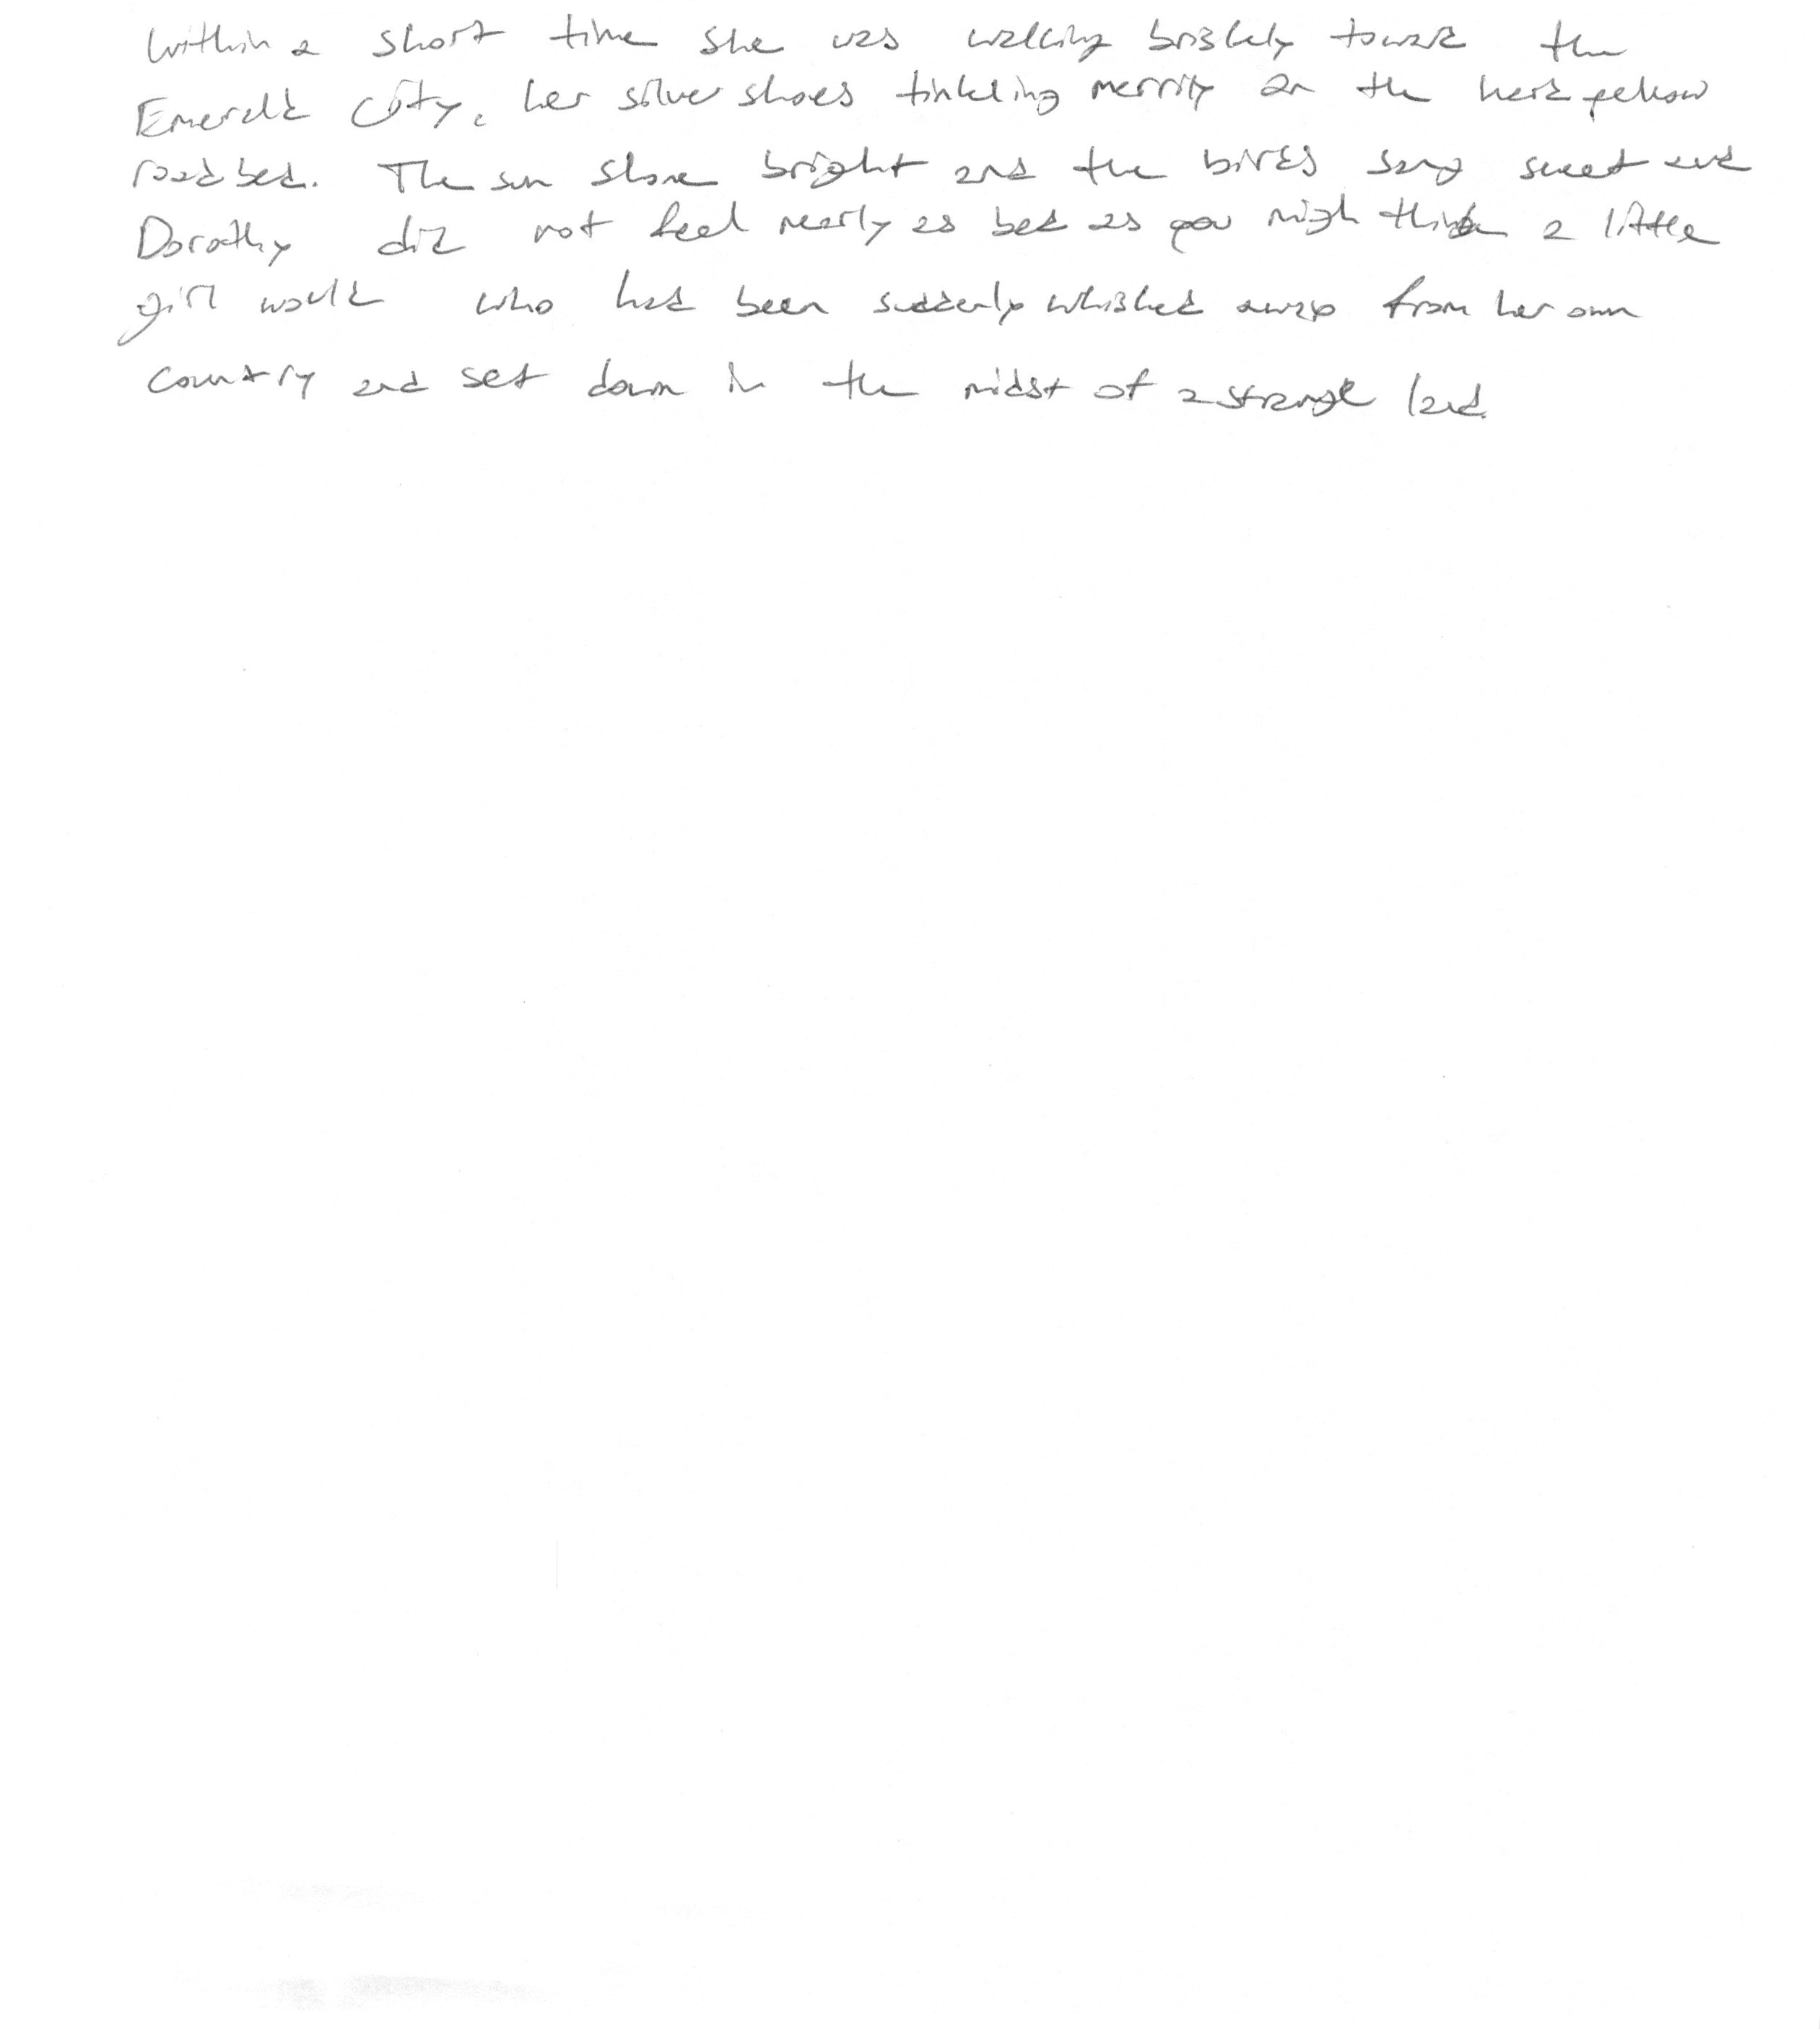 Within a short time she was walking briskly toward the
Emerald City, her silver shoes tinkling merrily on the hard yellow
road bed. The sun shone bright and the birds sang sweet and
Dorothy did not feel nearly as bad as you migh think a little
girl would who had been suddenly whisked away from her own
country and set down in the midst of a strange land.